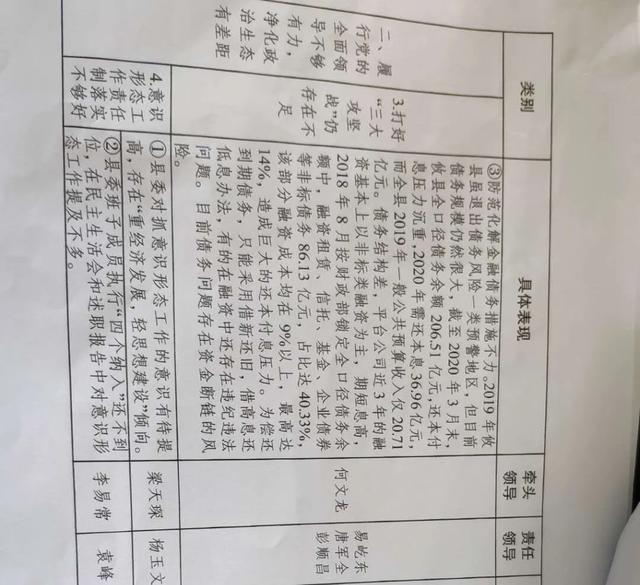 类别
具体表现
牵头
领导
责任
领导
二、履
行党的
全面领
导不够
有力，
净化政
治生态
有差距
3.打好
“三大
攻坚
战”仍
存在不
足
③防范化解金融债务措施不力。2019年攸
县虽退出债务风险一类预警地区，但目前
债务规模仍然很大，截至2020年3月末，
攸县全口径债务余额206.51亿元，还本付
息压力沉重，2020年需还本息36.96亿元，
而全县2019年一般公共预算收入仅20.71
亿元。债务结构差，平台公司近3年的融
资基本上以非标类融资为主，期短息高，
2018年8月按财政部锁定全口径债务余
额中，融资租赁、信托、基金、企业债券
等非标债务86.13亿元，占比达40.33%，
该部分融资成本均在9%以上，最高达
14%，造成巨大的还本付息压力。为偿还
到期债务，只能采用借新还旧，借高息还
低息办法，有的在融资中还存在违纪违法
问题。目前债务问题存在资金断链的风
险。
何文龙
易屹东
唐军全
彭顺昌
4.意识
形态工
作责任
制落实
不够好
①县委对抓意识形态工作的意识有待提
高，存在“重经济发展，轻思想建设”倾向。
梁天琛
杨玉文
②县委班子成员执行“四个纳入”还不到
位，在民主生活会和述职报告中对意识形
态工作提及不多。
李易常
袁峰